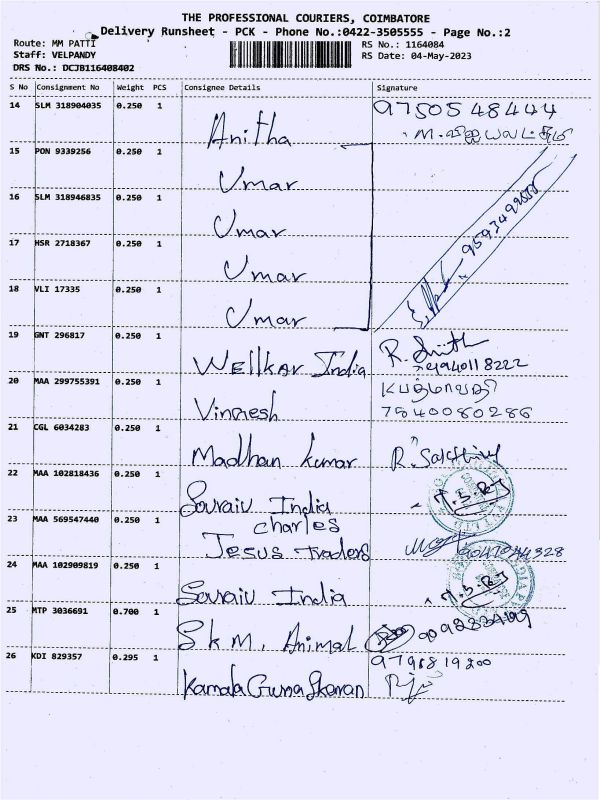 THE PROFESSIONAL COURIERS, COIMBATORE
Delivery Runsheet - PCK - Phone No.:0422-3505555 - Page No.:2
Route: MM PATTI
RS No.: 1164084
Staff: VELPANDY
RS Date: 04-May-2023
DRS No.: DCJB116408402
S No Consignment No Weight PCS Consignee Details Signature
14 SLM 318904035 0.250 1 Anitha 9750548444
15 PON 9339256 0.250 1 Umar
16 SLM 318946835 0.250 1 Umar
17 HSR 2718367 0.250 1 Umar
18 VLI 17335 0.250 1 Umar
19 GNT 296817 0.250 1 Wellkar India R.
20 MAA 299755391 0.250 1 Vinmesh
7540080286
21 CGL 6034283 0.250 1 Madhan kumar R. Sakthivel
22 MAA 102818436 0.250 1 Souraiv India M.S.R.J
23 MAA 569547440 0.250 1 charles
Jesus Traders
24 MAA 102909819 0.250 1 Souraiv India M.S.R.J
25 MTP 3036691 0.700 1 S.K.M. Animal
26 KDI 829357 0.295 1 Kamala Guna Skaran